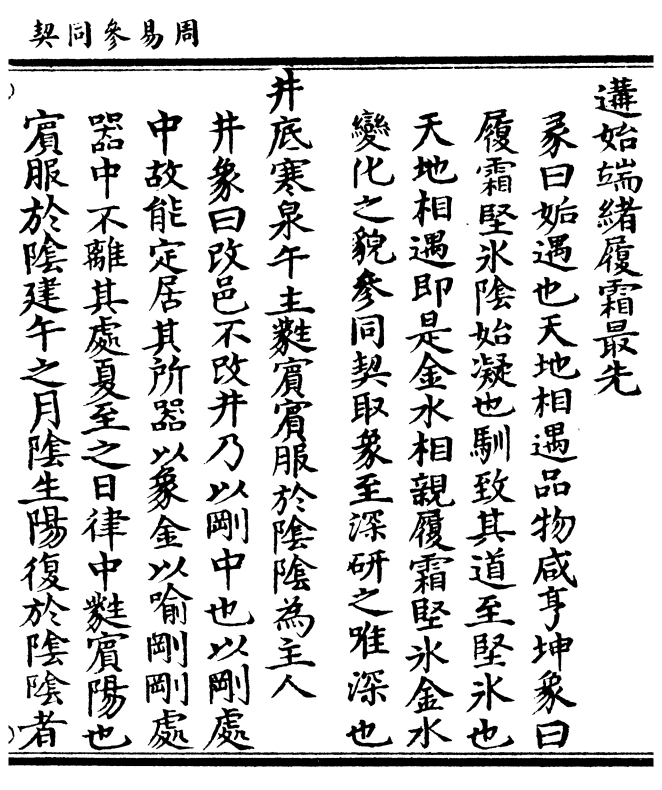 周易參同契
遘始端緒履霜最先
彖曰姤遇也天地相遇品物咸亨坤象曰
履霜堅氷陰始凝也馴致其道至堅氷也
天地相遇即是金水相親履霜堅氷金水
變化之貌參同契取象至深研之唯深也
井底寒泉午主蕤賓賓服於陰陰為主人
井象曰改邑不改井乃以剛中也以剛處
中故能定居其所器以象金以喻剛剛處
器中不離其處夏至之日律中蕤賓陽也
賓服於陰建午之月陰生陽復於陰陰者